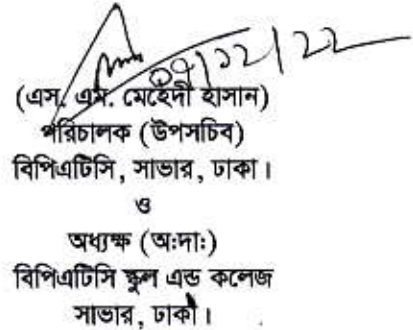 ০৭/১২/২২
(এস. এম. মেহেদী হাসান)
পরিচালক (উপসচিব)
বিপিএটিসি, সাভার, ঢাকা।
ও
অধ্যক্ষ (অ:দা:)
বিপিএটিসি স্কুল এন্ড কলেজ
সাভার, ঢাকা।